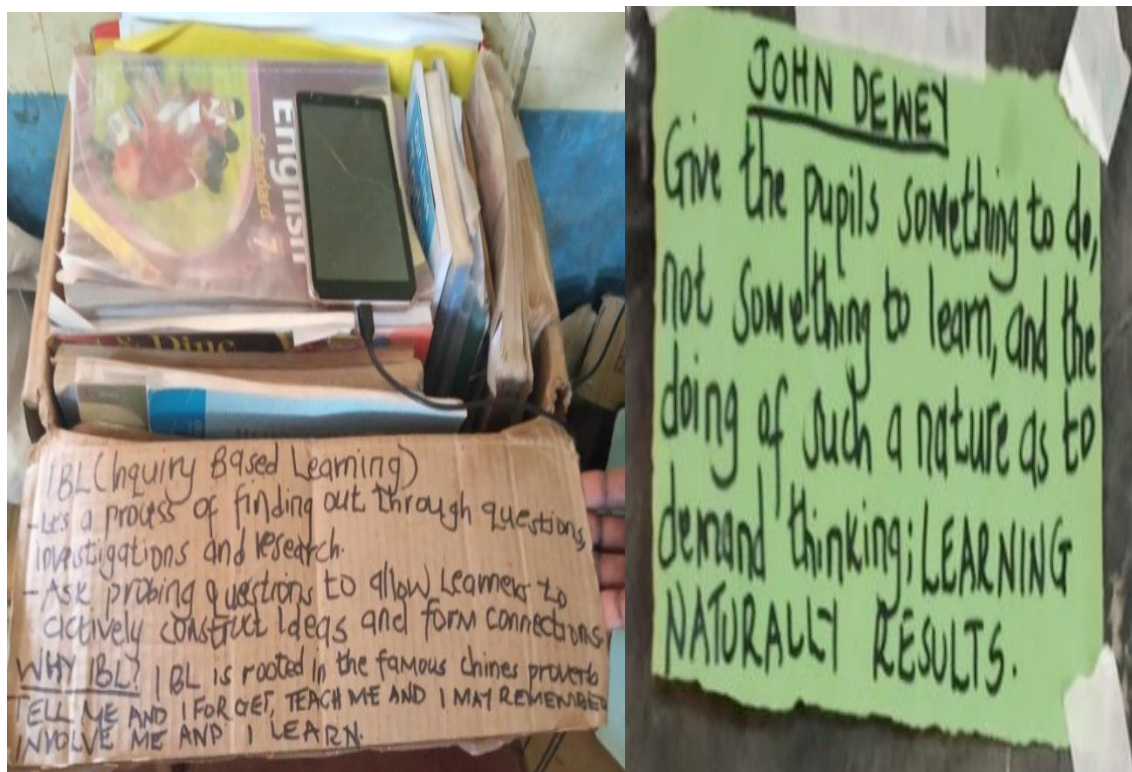 English
Standard 7
IBL (Inquiry Based Learning)
- It's a process of finding out through questions,
investigations and research.
- Ask probing questions to allow Learners to
actively construct Ideas and form connections
WHY IBL? IBL is rooted in the famous chines proverb
TELL ME AND I FORGET, TEACH ME AND I MAY REMEMBER
INVOLVE ME AND I LEARN.
JOHN DEWEY
Give the pupils something to do,
not something to learn, and the
doing of such a nature as to
demand thinking; LEARNING
NATURALLY RESULTS.